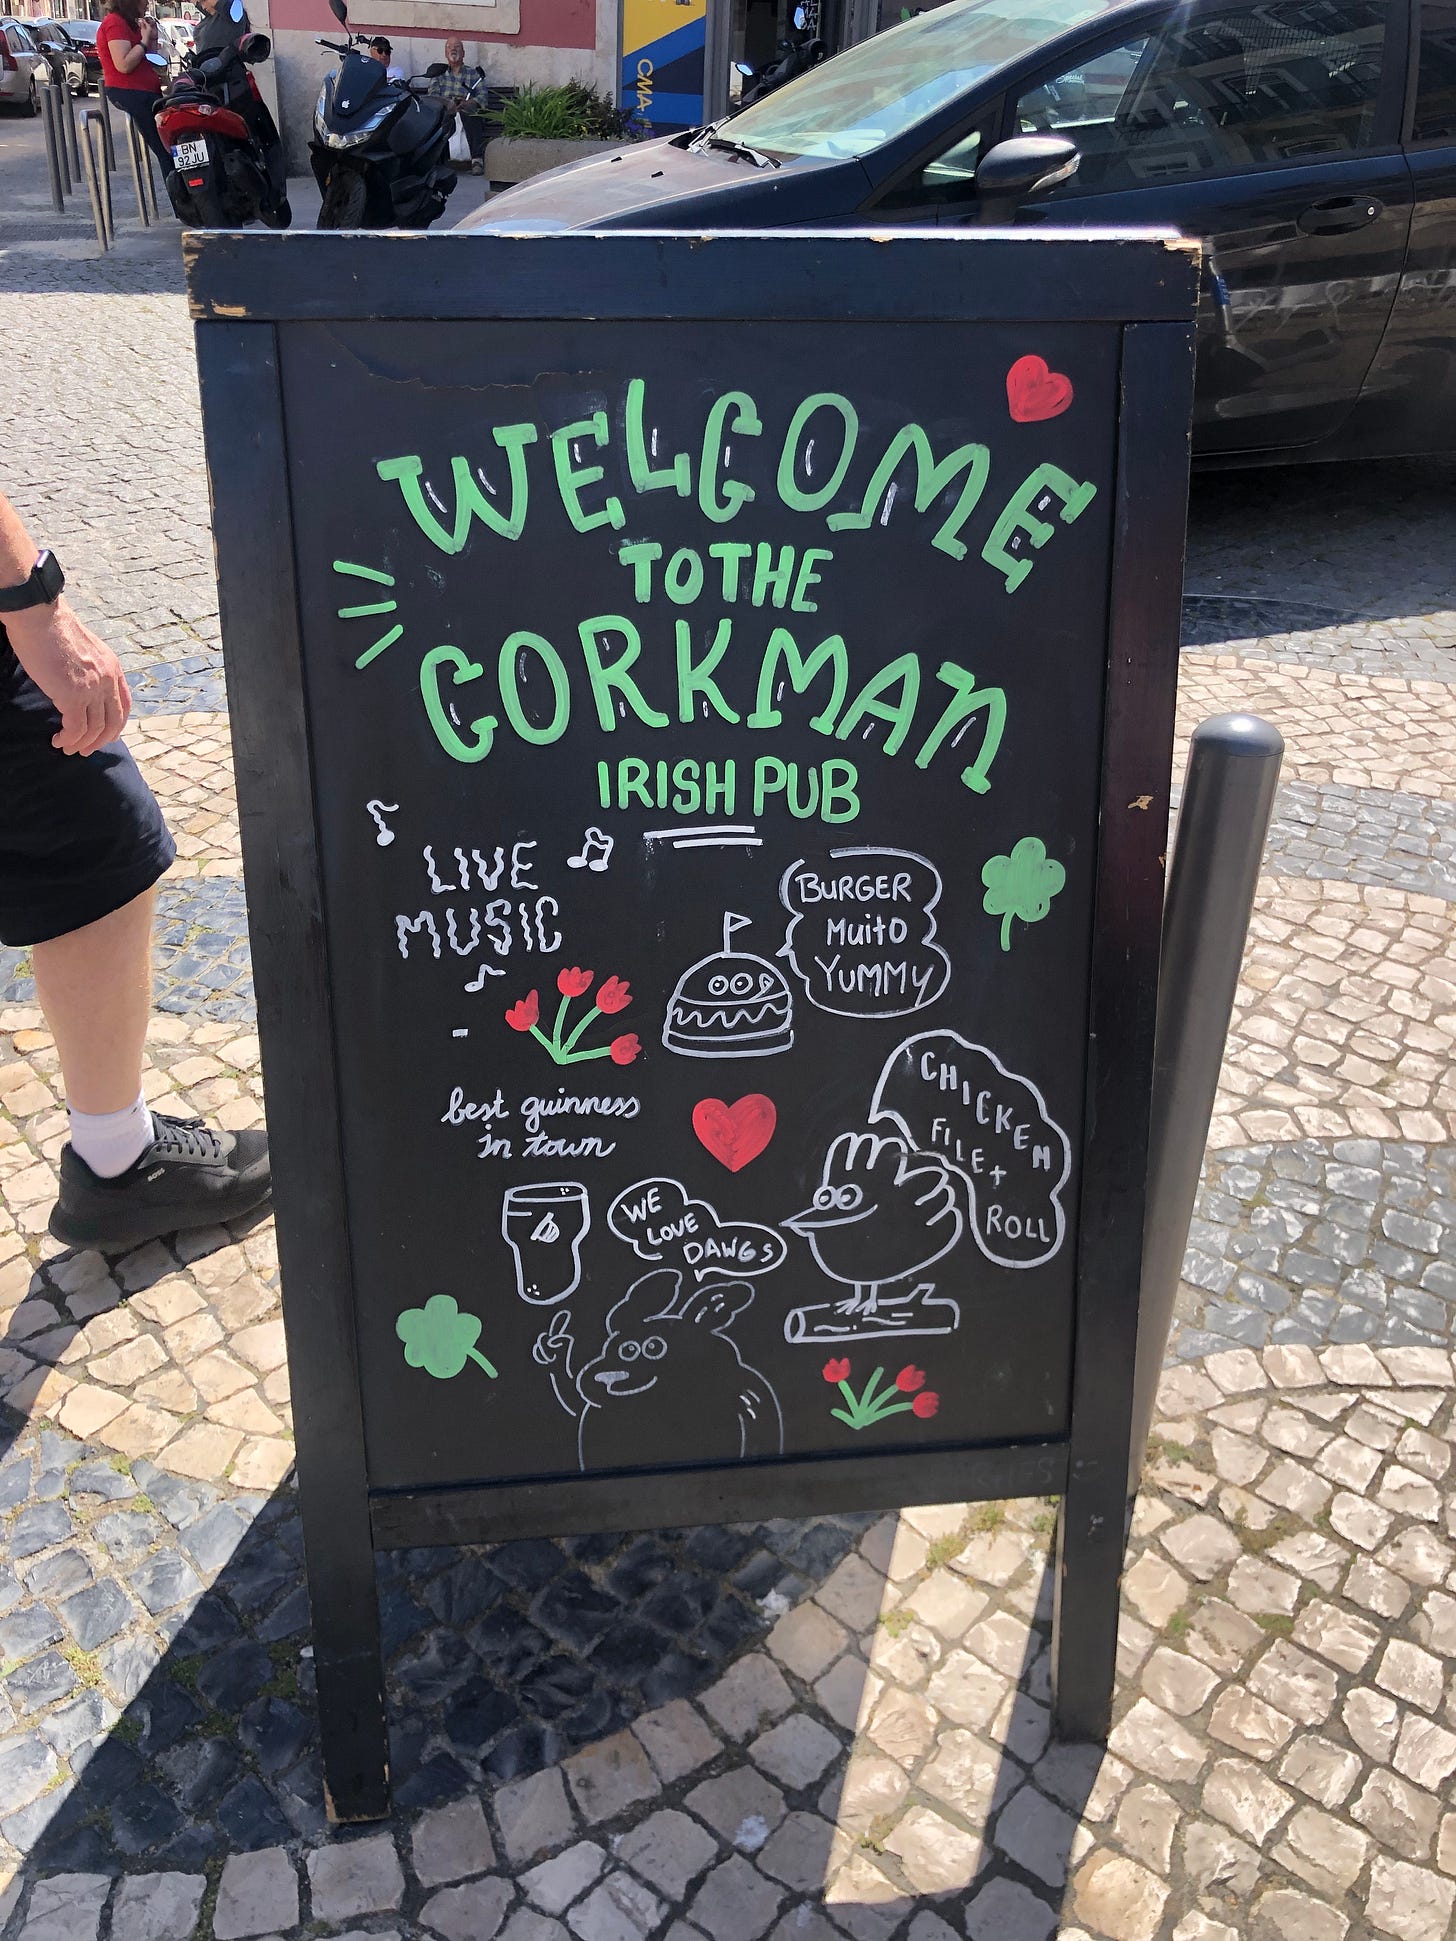 WELCOME
TO THE
CORKMAN
IRISH PUB
LIVE
MUSIC
BURGER
Muito
YUMMY
best guinness
in town
CHICKEN
FILEt
ROLL
WE
LOVE
DAWGS
CMA
BN
92 JU